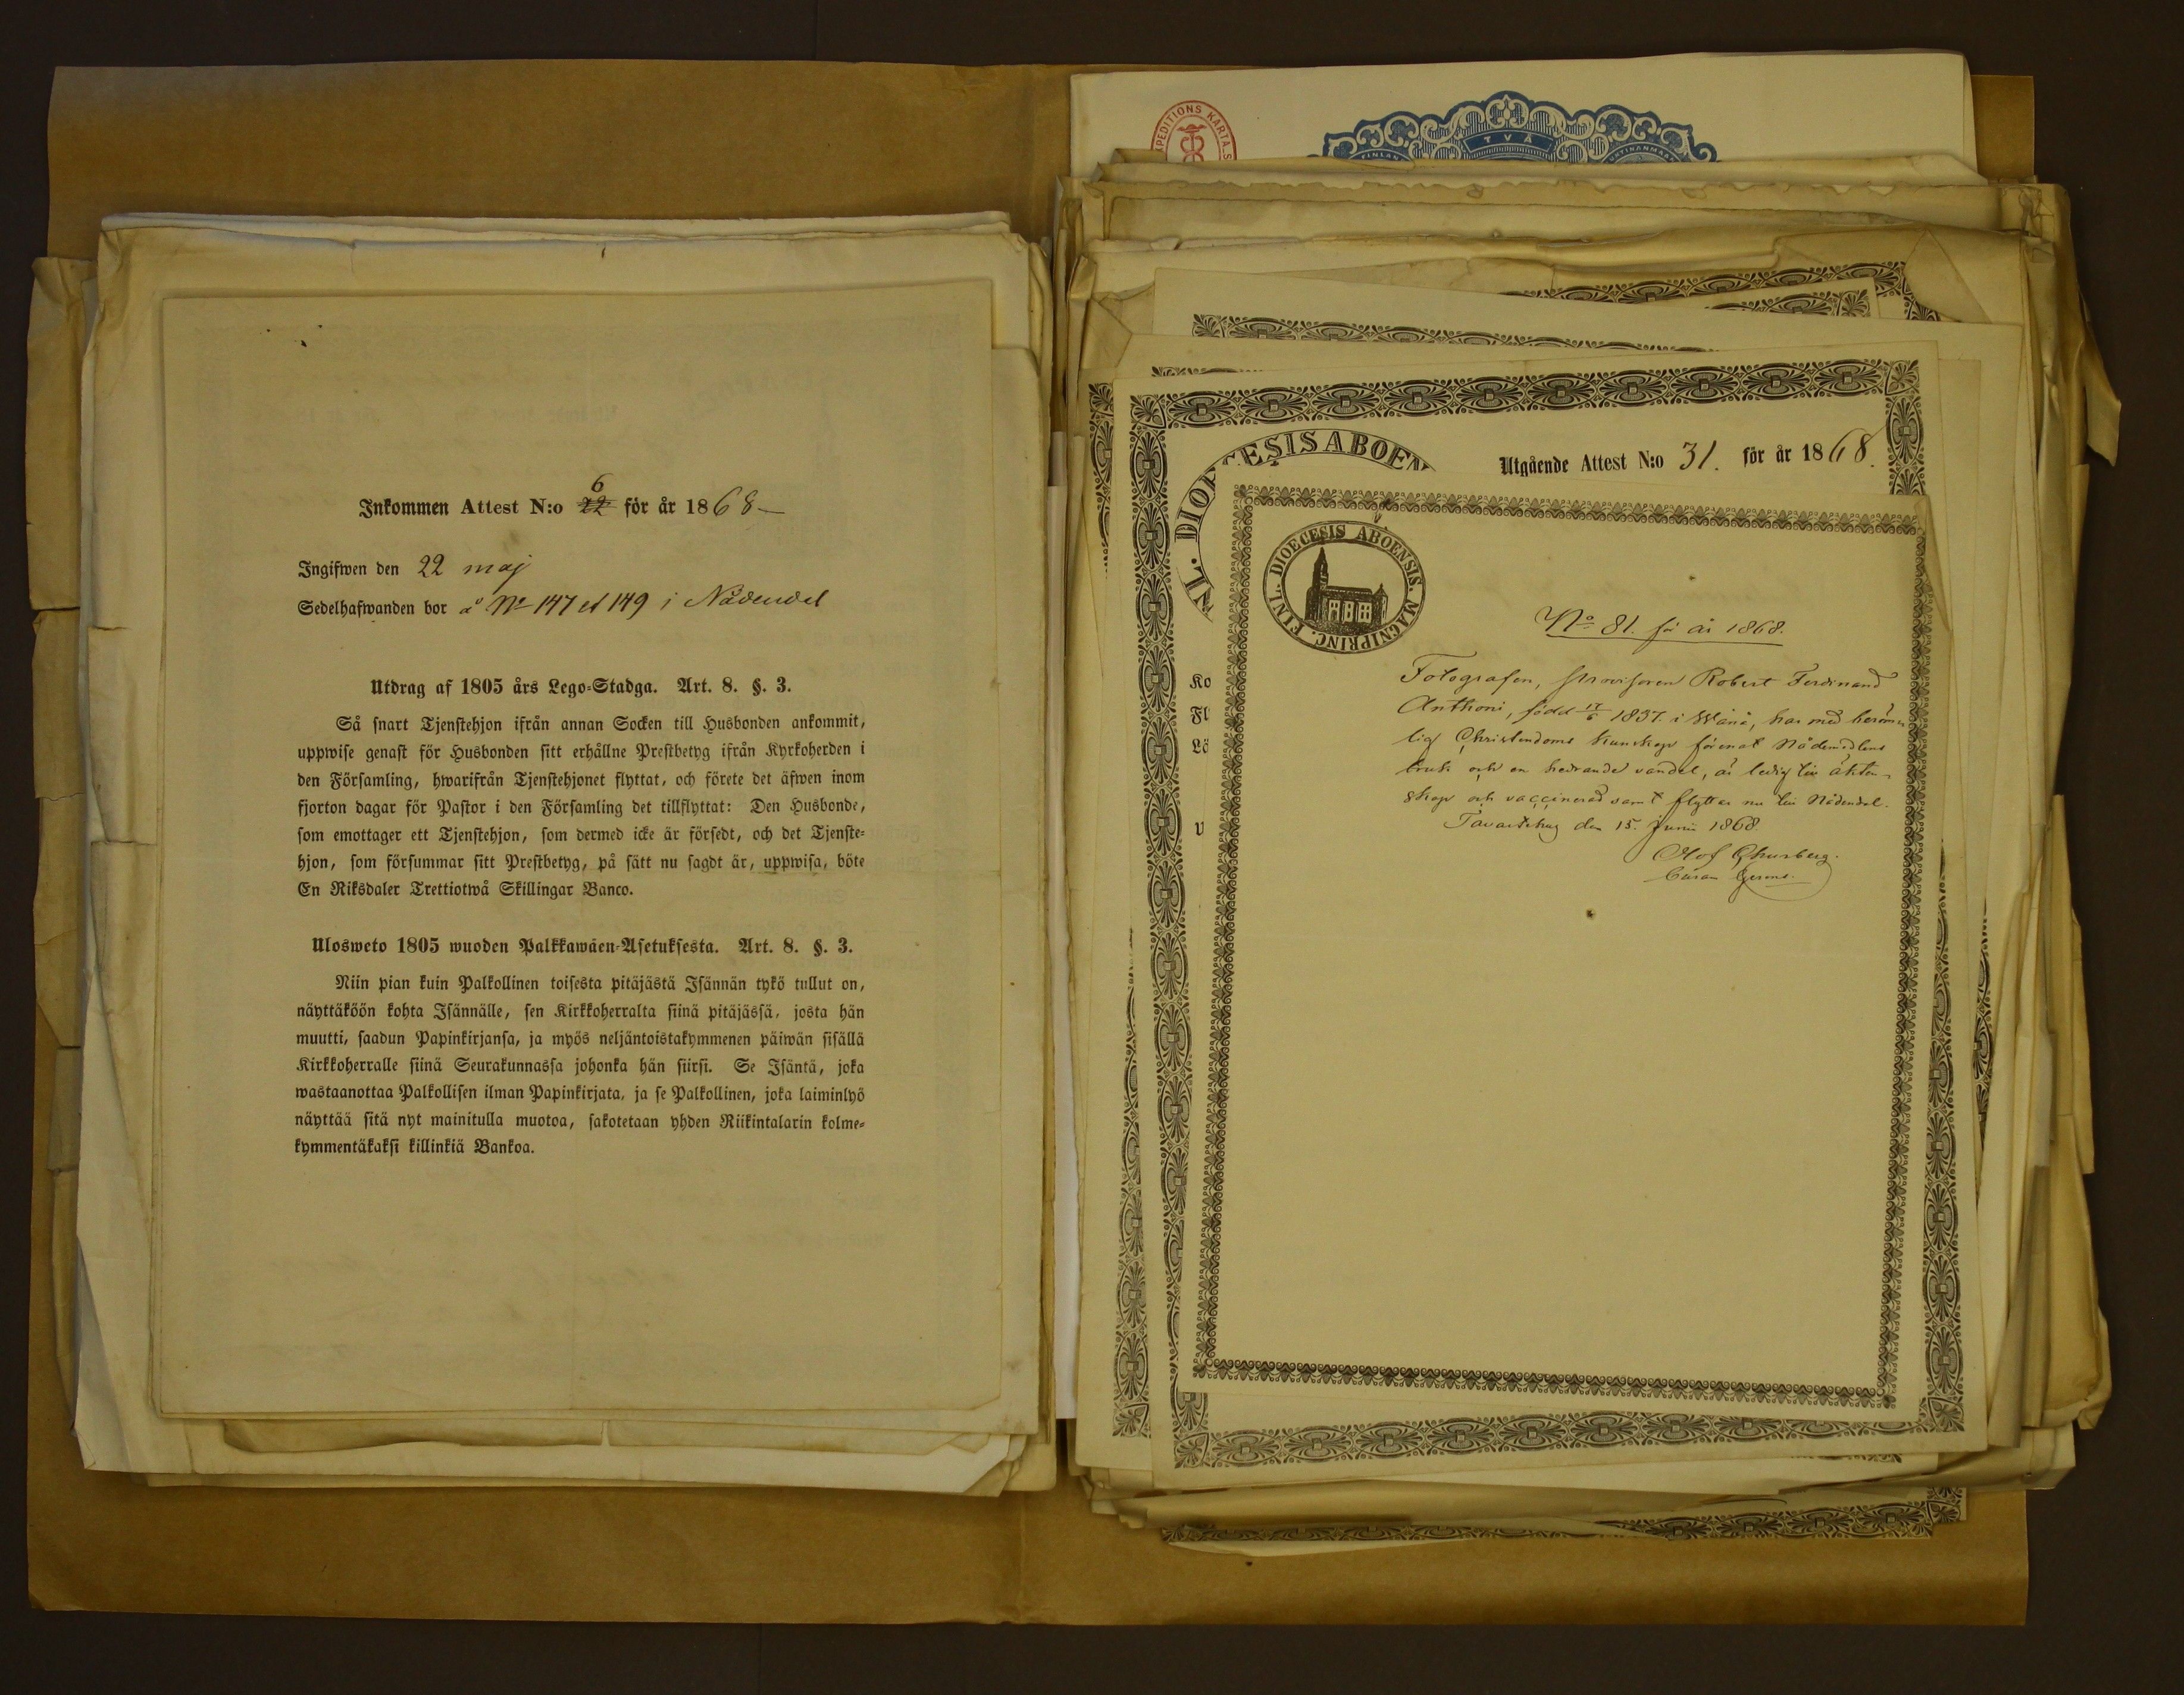 Inkommen Attest N:o 22 6 för år 1868
Ingifwen den 22 maj
Sedelhafwanden bor å No 147 et 149 i Nådendal
Utdrag af 1805 års Lego-Stadga. Art. 8. §. 3.
Så snart Tjenstehjon ifrån annan Socken till Husbonden ankommit,
uppwise genast för Husbonden sitt erhållne Prestbetyg ifrån Kyrkoherden i
den Församling, hwarifrån Tjenstehjonet flyttat, och förete det äfwen inom
fjorton dagar för Pastor i den Församling det tillflyttat: Den Husbonde,
som emottager ett Tjenstehjon, som dermed icke är försedt, och det Tjenste-
hjon, som försummar sitt Prestbetyg, på sätt nu sagdt är, uppwisa, böte
En Riksdaler Trettiotwå Skillingar Banco.
Ulosweto 1805 wuoden Palkkawäen-Asetuksesta. Art. 8. §. 3.
Niin pian kuin Palkollinen toisesta pitäjästä Isännän tykö tullut on,
näyttäköön kohta Isännälle, sen Kirkkoherralta siinä pitäjässä, josta hän
muutti, saadun Papinkirjansa, ja myös neljäntoistakymmenen päiwän sisällä
Kirkkoherralle siinä Seurakunnassa johonka hän siirsi. Se Isäntä, joka
wastaanottaa Palkollisen ilman Papinkirjata, ja se Palkollinen, joka laiminlyö
näyttää sitä nyt mainitulla muotoa, sakotetaan yhden Riikintalarin kolme-
kymmentäkaksi killinkiä Bankoa.
EXPEDITIONS KARTA
TVÅ
FINLAN
Utgående Attest N:o 31. för år 1868.
NL. DIOECESIS ABOEN
Ko
Fl
Lö
FINL. DIOECESIS ABOENSIS. MAGNI PRINC.
No 81. för år 1868.
Fotografen, Provisoren Robert Ferdinand
Anthoni, född 17/6 1837 i Wånå, har med beröm-
lig Christendoms kunskap förenat Nådemedlens
bruk och en hedrande vandel, är ledig till äkten-
skap och vaccinerad samt flyttar nu till Nådendal.
Tavastehus den 15. Junii 1868.
Olof